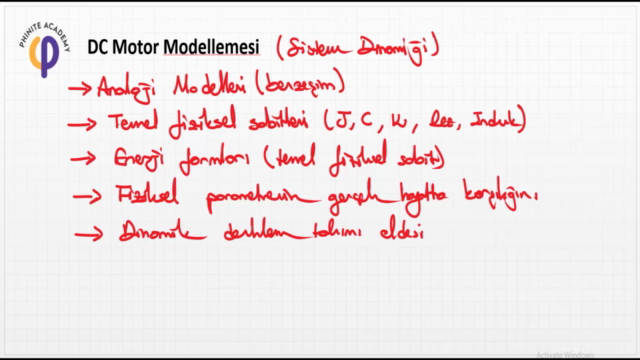 PHINITE ACADEMY
DC Motor Modellemesi (Sistem Dinamiği)
→ Analoji Modelleri (benzeşim)
→ Temel fiziksel sabitleri (J, C, K, Rez, Induk)
→ Enerji formları (temel fiziksel sabit)
→ Fiziksel parametrenin gerçek hayatta karşılığını
→ Dinamik denklem takımı eldesi
Activate Windows